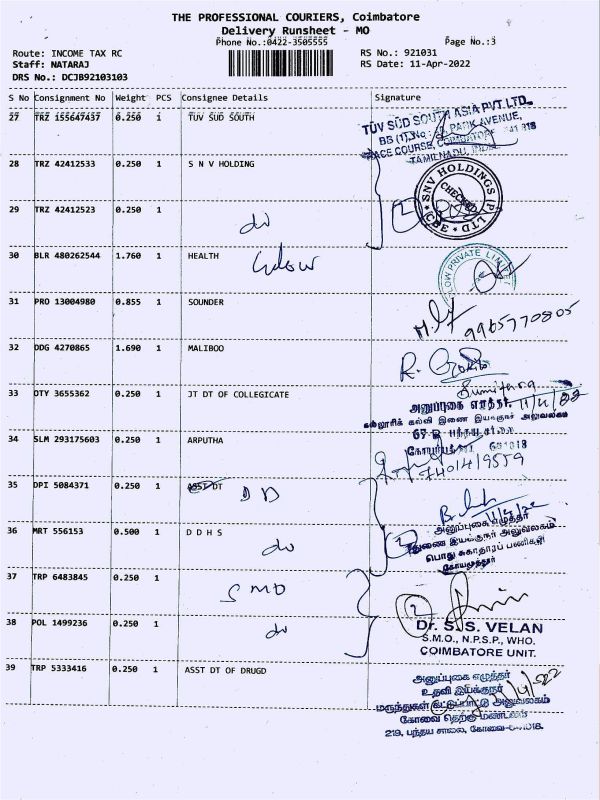 THE PROFESSIONAL COURIERS, Coimbatore
Delivery Runsheet - MO
Phone No.:0422-3505555 Page No.:3
Route: INCOME TAX RC RS No.: 921031
Staff: NATARAJ RS Date: 11-Apr-2022
DRS No.: DCJB92103103
S No Consignment No Weight PCS Consignee Details Signature
27 TRZ 155647437 0.250 1 TUV SUD SOUTH
TÜV SÜD SOUTH ASIA PVT.LTD.,
PARK AVENUE,
RACE COURSE, COIMBATORE
TAMILNADU, INDIA
28 TRZ 42412533 0.250 1 S N V HOLDING
SNV HOLDINGS (P) LTD CBE
CHECKED
29 TRZ 42412523 0.250 1
do 2
30 BLR 480262544 1.760 1 HEALTH
PRIVATE LIMITED
31 PRO 13004980 0.855 1 SOUNDER
9965770805
32 DDG 4270865 1.690 1 MALIBOO
R.
33 OTY 3655362 0.250 1 JT DT OF COLLEGICATE
அனுப்புகை எழுத்தர் 11/4/22
கல்லூரிக் கல்வி இணை இயக்குநர் அலுவலகம்
34 SLM 293175603 0.250 1 ARPUTHA
641018
7401419559
35 DPI 5084371 0.250 1 ASST DT DD
அனுப்புகை எழுத்தர்
36 MRT 556153 0.500 1 D D H S
துணை இயக்குநர் அலுவலகம்
do 2
பொது சுகாதாரப் பணிகள்
கோயமுத்தூர்
37 TRP 6483845 0.250 1
SMO
38 POL 1499236 0.250 1
do 2
Dr. S.S. VELAN
S.M.O., N.P.S.P., WHO.
COIMBATORE UNIT.
39 TRP 5333416 0.250 1 ASST DT OF DRUGD
அனுப்புகை எழுத்தர்
உதவி இயக்குநர்
மருந்துகள் கட்டுப்பாட்டு அலுவலகம்
கோவை தெற்கு மண்டலம்
219, பந்தய சாலை, கோவை-641018.